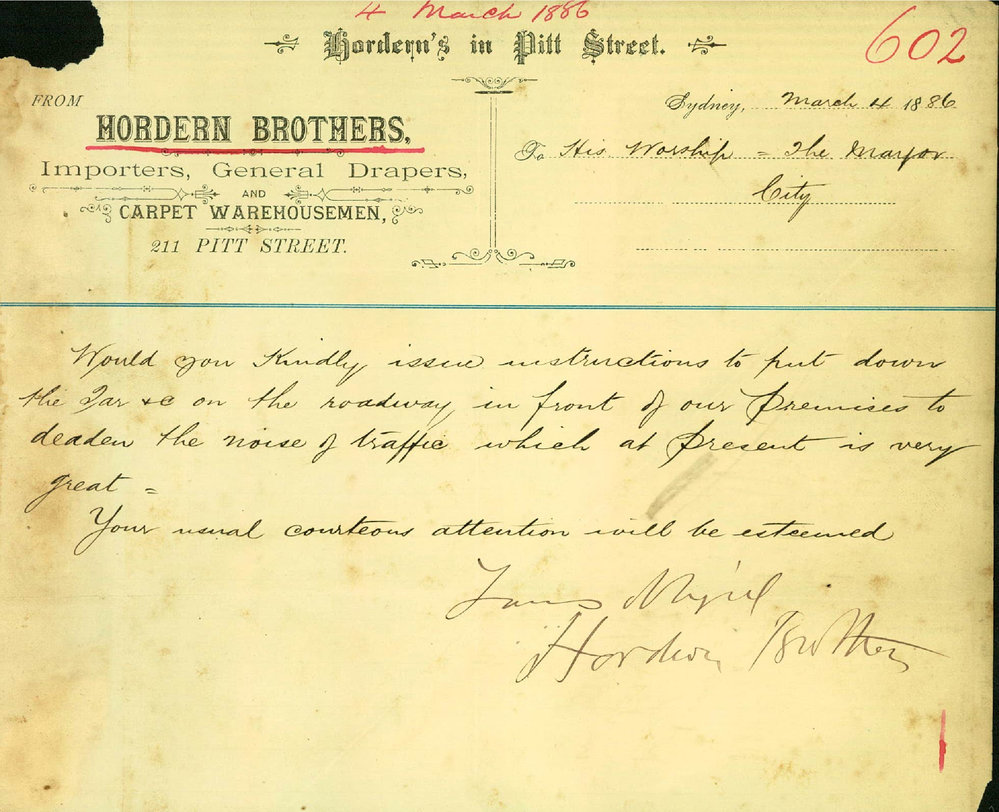 4 March 1886
602
Hordern's in Pitt Street.
FROM
HORDERN BROTHERS,
Importers, General Drapers,
AND
CARPET WAREHOUSEMEN,
211 PITT STREET.
Sydney, March 4 1886
To His Worship = The Mayor
City
Would you Kindly issue instructions to put down
the Tar &c on the roadway in front of our premises to
deaden the noise of traffic which at present is very
great =
Your usual courteous attention will be esteemed
Yours
Hordern Brothers